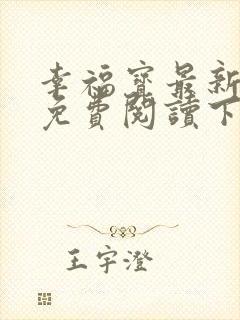 幸福寶最新
免費閱讀下
王宇澄